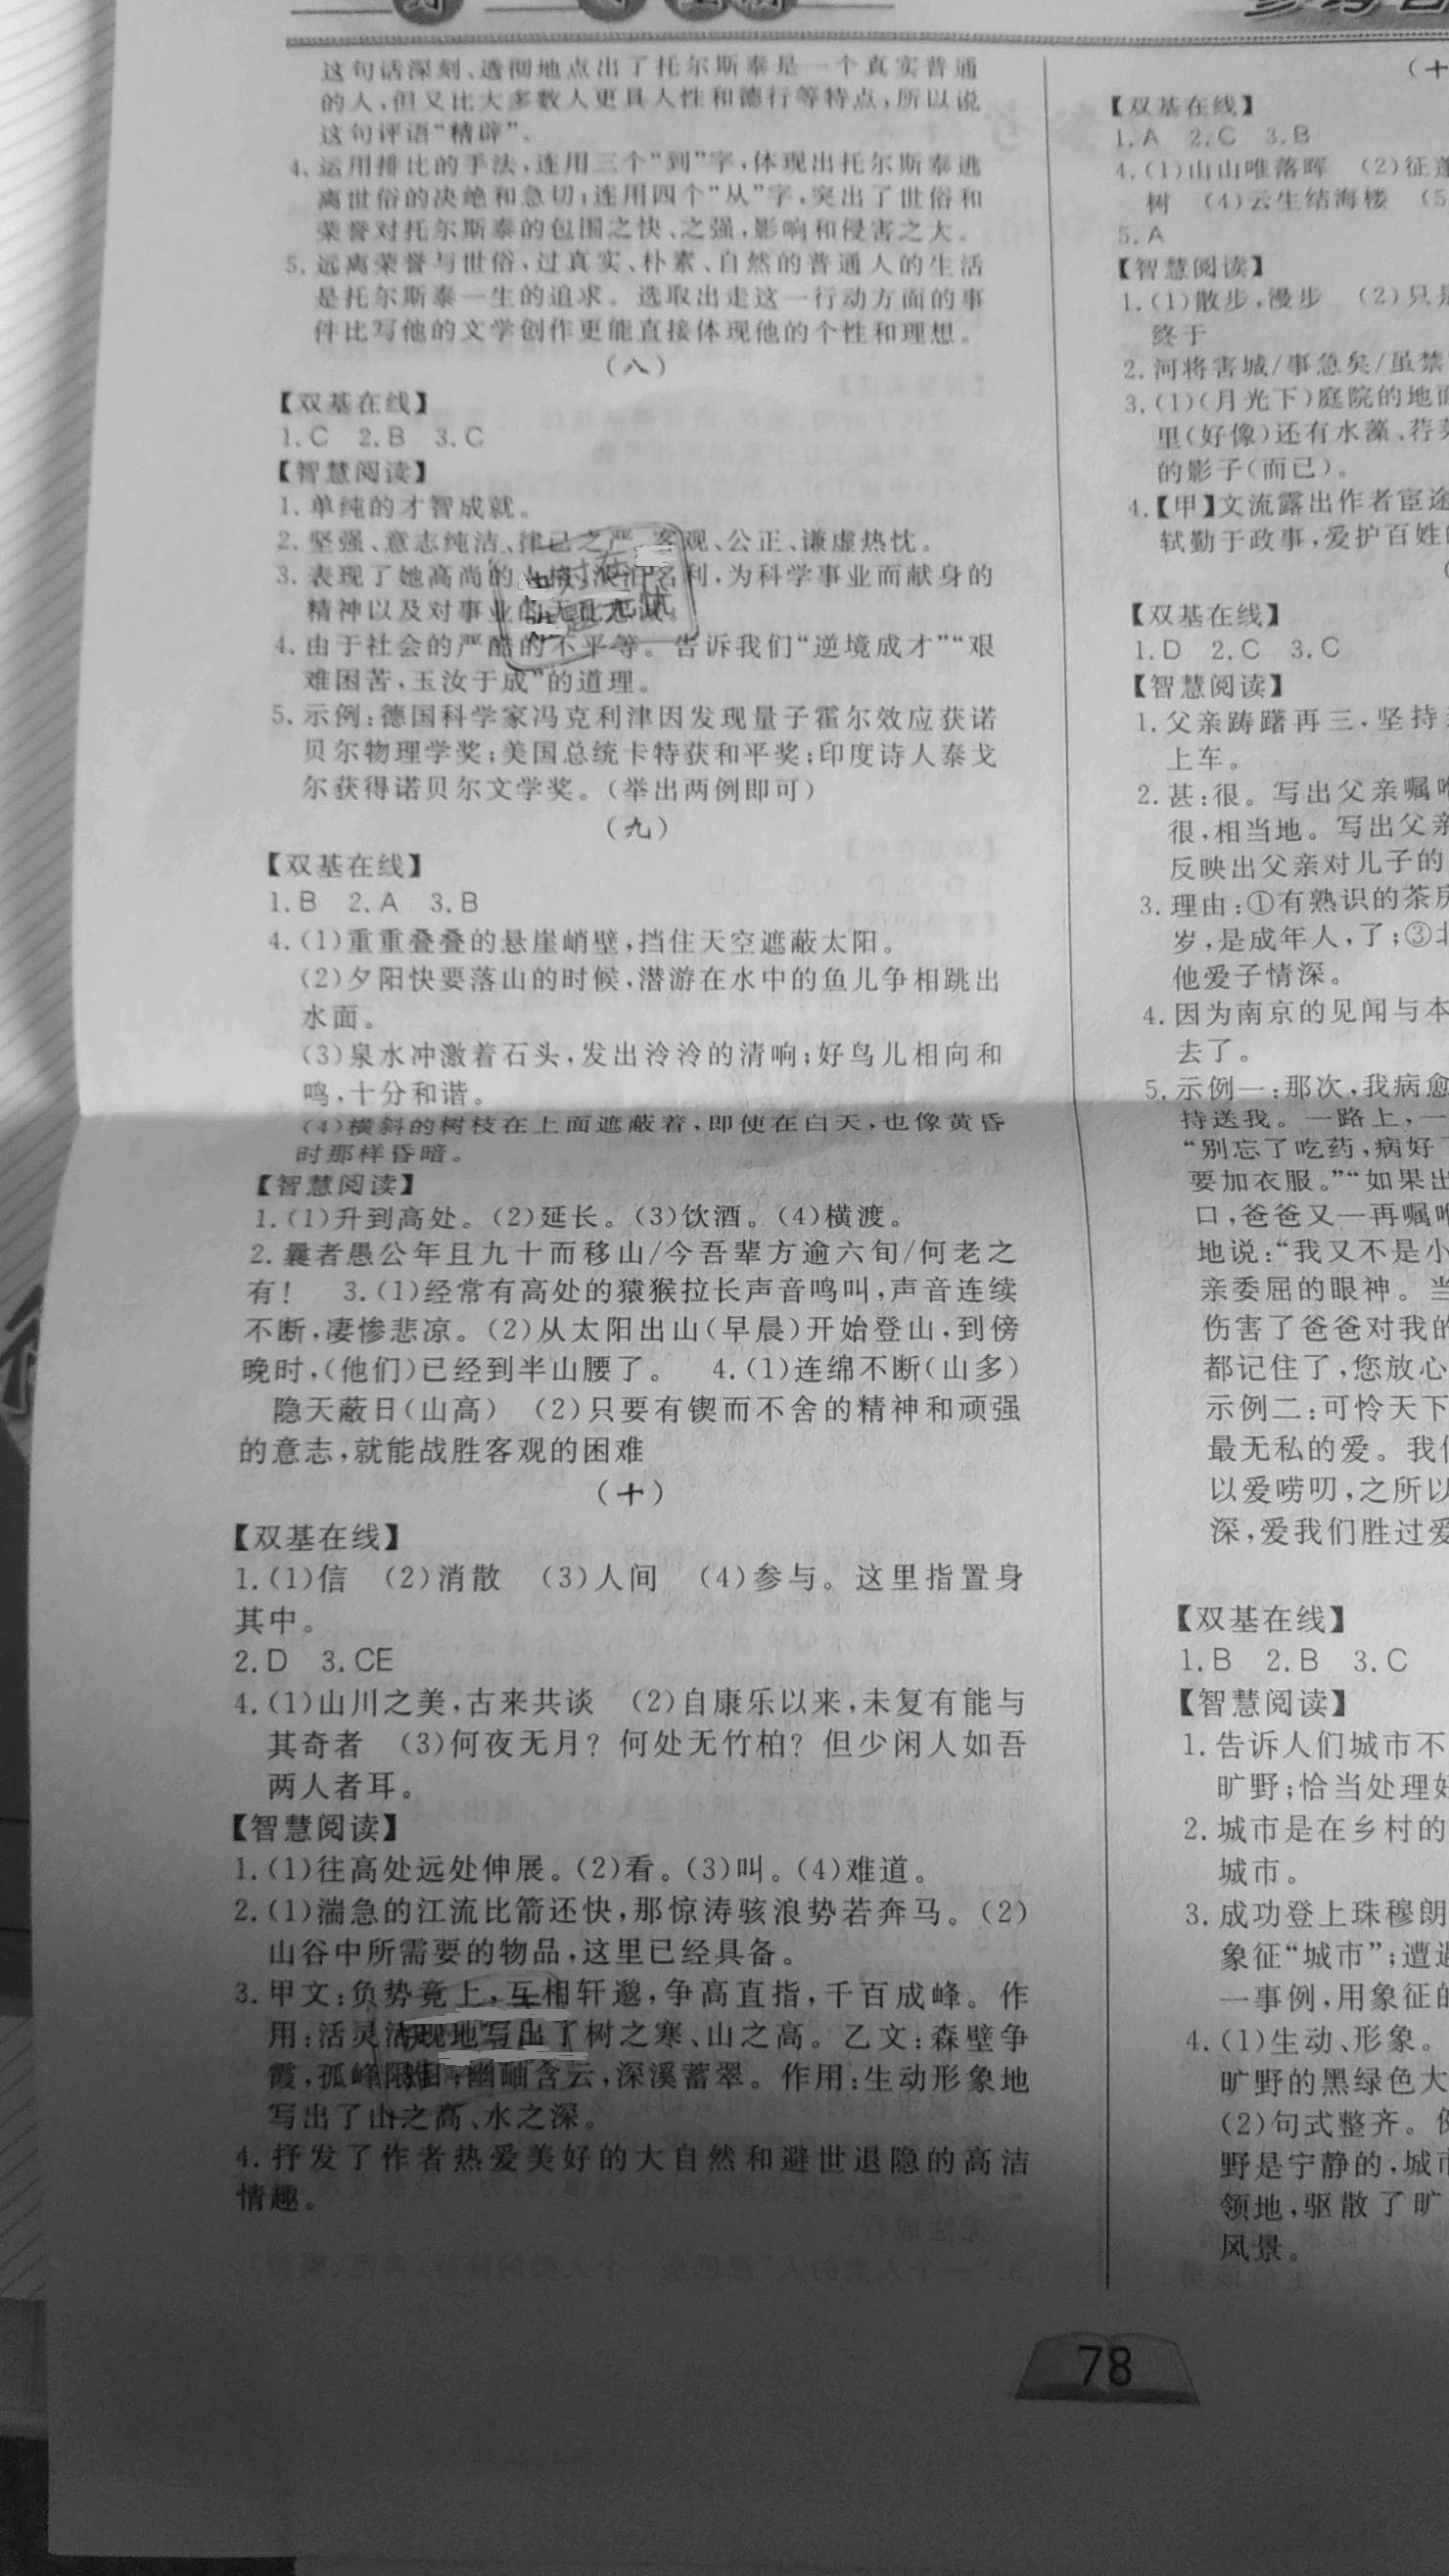 这句话深刻、透彻地点出了托尔斯泰是一个真实普通
的人,但又比大多数人更具人性和德行等特点,所以说
这句评语“精辟”。
4. 运用排比的手法,连用三个“到”字,体现出托尔斯泰逃
离世俗的决绝和急切;连用四个“从”字,突出了世俗和
荣誉对托尔斯泰的包围之快、之强,影响和侵害之大。
5. 远离荣誉与世俗,过真实、朴素、自然的普通人的生活
是托尔斯泰一生的追求。选取出走这一行动方面的事
件比写他的文学创作更能直接体现他的个性和理想。
(八)
【双基在线】
1. C 2. B 3. C
【智慧阅读】
1. 单纯的才智成就。
2. 坚强、意志纯洁、律己之严、客观、公正、谦虚热忱。
3. 表现了她高尚的 名利,为科学事业而献身的
精神以及对事业的
4. 由于社会的严酷的不平等。告诉我们“逆境成才”“艰
难困苦,玉汝于成”的道理。
5. 示例:德国科学家冯克利津因发现量子霍尔效应获诺
贝尔物理学奖;美国总统卡特获和平奖;印度诗人泰戈
尔获得诺贝尔文学奖。(举出两例即可)
(九)
【双基在线】
1. B 2. A 3. B
4. (1)重重叠叠的悬崖峭壁,挡住天空遮蔽太阳。
(2)夕阳快要落山的时候,潜游在水中的鱼儿争相跳出
水面。
(3)泉水冲激着石头,发出泠泠的清响;好鸟儿相向和
鸣,十分和谐。
(4)横斜的树枝在上面遮蔽着,即使在白天,也像黄昏
时那样昏暗。
【智慧阅读】
1. (1)升到高处。(2)延长。(3)饮酒。(4)横渡。
2. 曩者愚公年且九十而移山/今吾辈方逾六旬/何老之
有! 3. (1)经常有高处的猿猴拉长声音鸣叫,声音连续
不断,凄惨悲凉。(2)从太阳出山(早晨)开始登山,到傍
晚时,(他们)已经到半山腰了。 4. (1)连绵不断(山多)
隐天蔽日(山高) (2)只要有锲而不舍的精神和顽强
的意志,就能战胜客观的困难
(十)
【双基在线】
1. (1)信 (2)消散 (3)人间 (4)参与。这里指置身
其中。
2. D 3. CE
4. (1)山川之美,古来共谈 (2)自康乐以来,未复有能与
其奇者 (3)何夜无月?何处无竹柏?但少闲人如吾
两人者耳。
【智慧阅读】
1. (1)往高处远处伸展。(2)看。(3)叫。(4)难道。
2. (1)湍急的江流比箭还快,那惊涛骇浪势若奔马。(2)
山谷中所需要的物品,这里已经具备。
3. 甲文:负势竞上,互相轩邈,争高直指,千百成峰。作
用:活灵活现地写出了树之寒、山之高。乙文:森壁争
霞,孤峰限日;幽岫含云,深溪蓄翠。作用:生动形象地
写出了山之高、水之深。
4. 抒发了作者热爱美好的大自然和避世退隐的高洁
情趣。
(十
【双基在线】
1. A 2. C 3. B
4. (1)山山唯落晖 (2)征蓬
树 (4)云生结海楼 (5
5. A
【智慧阅读】
1. (1)散步,漫步 (2)只是
终于
2. 河将害城/事急矣/虽禁
3. (1)(月光下)庭院的地面
里(好像)还有水藻、荇菜
的影子(而已)。
4. 【甲】文流露出作者宦途
轼勤于政事,爱护百姓的
(
【双基在线】
1. D 2. C 3. C
【智慧阅读】
1. 父亲踌躇再三,坚持
上车。
2. 甚:很。写出父亲嘱咐
很,相当地。写出父亲
反映出父亲对儿子的
3. 理由:①有熟识的茶房
岁,是成年人,了;③北
他爱子情深。
4. 因为南京的见闻与本
去了。
5. 示例一:那次,我病愈
持送我。一路上,一
“别忘了吃药,病好了
要加衣服。”“如果出
口,爸爸又一再嘱咐
地说:“我又不是小
亲委屈的眼神。当
伤害了爸爸对我的
都记住了,您放心
示例二:可怜天下
最无私的爱。我们
以爱唠叨,之所以
深,爱我们胜过爱
【双基在线】
1. B 2. B 3. C
【智慧阅读】
1. 告诉人们城市不
旷野;恰当处理好
2. 城市是在乡村的
城市。
3. 成功登上珠穆朗
象征“城市”;遭遇
一事例,用象征的
4. (1)生动、形象。
旷野的黑绿色大
(2)句式整齐。
野是宁静的,城市
领地,驱散了旷
风景。
78